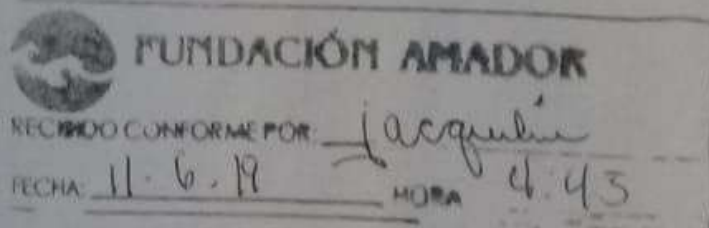 FUNDACIÓN AMADOR
RECIBIDO CONFORME POR: jacquelin
FECHA: 11.6.19 HORA 4:43